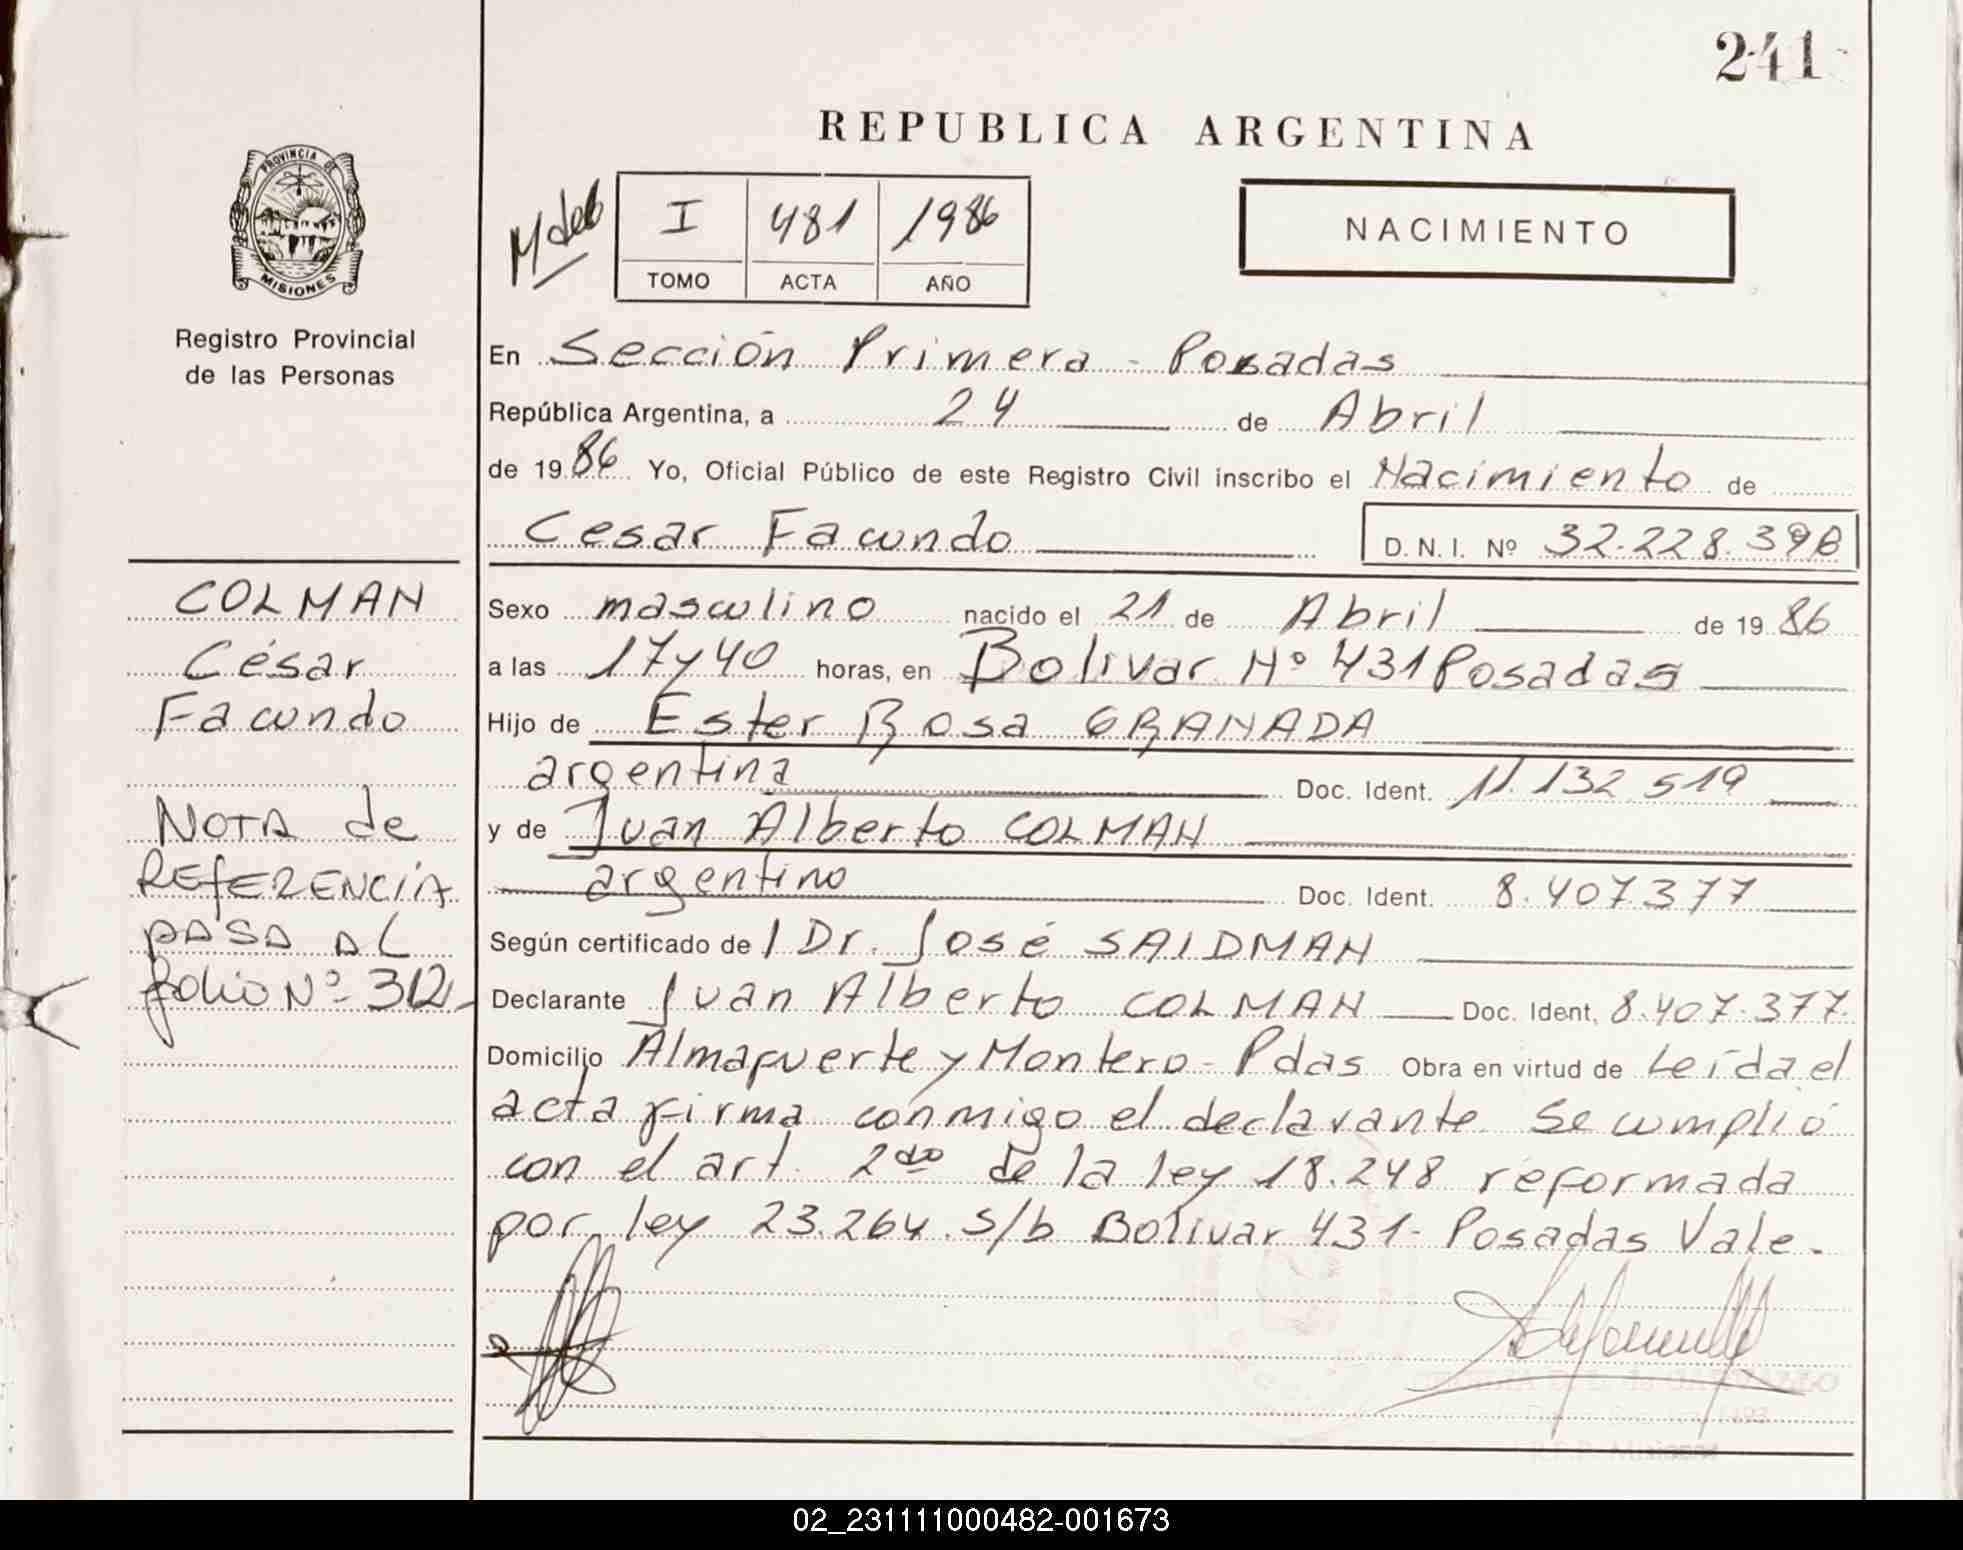 241
REPUBLICA ARGENTINA
PROVINCIA DE
MISIONES
Registro Provincial
de las Personas
I 481 1986
TOMO ACTA AÑO
NACIMIENTO
En Sección Primera - Posadas
República Argentina, a 24 de Abril
de 1986 Yo, Oficial Público de este Registro Civil inscribo el Nacimiento de
Cesar Facundo D. N. I. Nº 32.228.398
COLMAN
César
Facundo
NOTA de
REFERENCIA
PASA AL
folio Nº 312.-
Sexo masculino nacido el 21 de Abril de 1986
a las 17 y 40 horas, en Bolivar Nº 431 Posadas
Hijo de Ester Rosa GRANADA
argentina Doc. Ident. 11.132.519
y de Juan Alberto COLMAN
argentino Doc. Ident. 8.407.377
Según certificado de l Dr. José SAIDMAN
Declarante Juan Alberto COLMAN Doc. Ident, 8.407.377.
Domicilio Almafuerte y Montero - Pdas Obra en virtud de Leída el
acta firma conmigo el declarante. Se cumplió
con el art. 2do de la ley 18.248 reformada
por ley 23.264. S/b Bolivar 431- Posadas Vale.
02_231111000482-001673